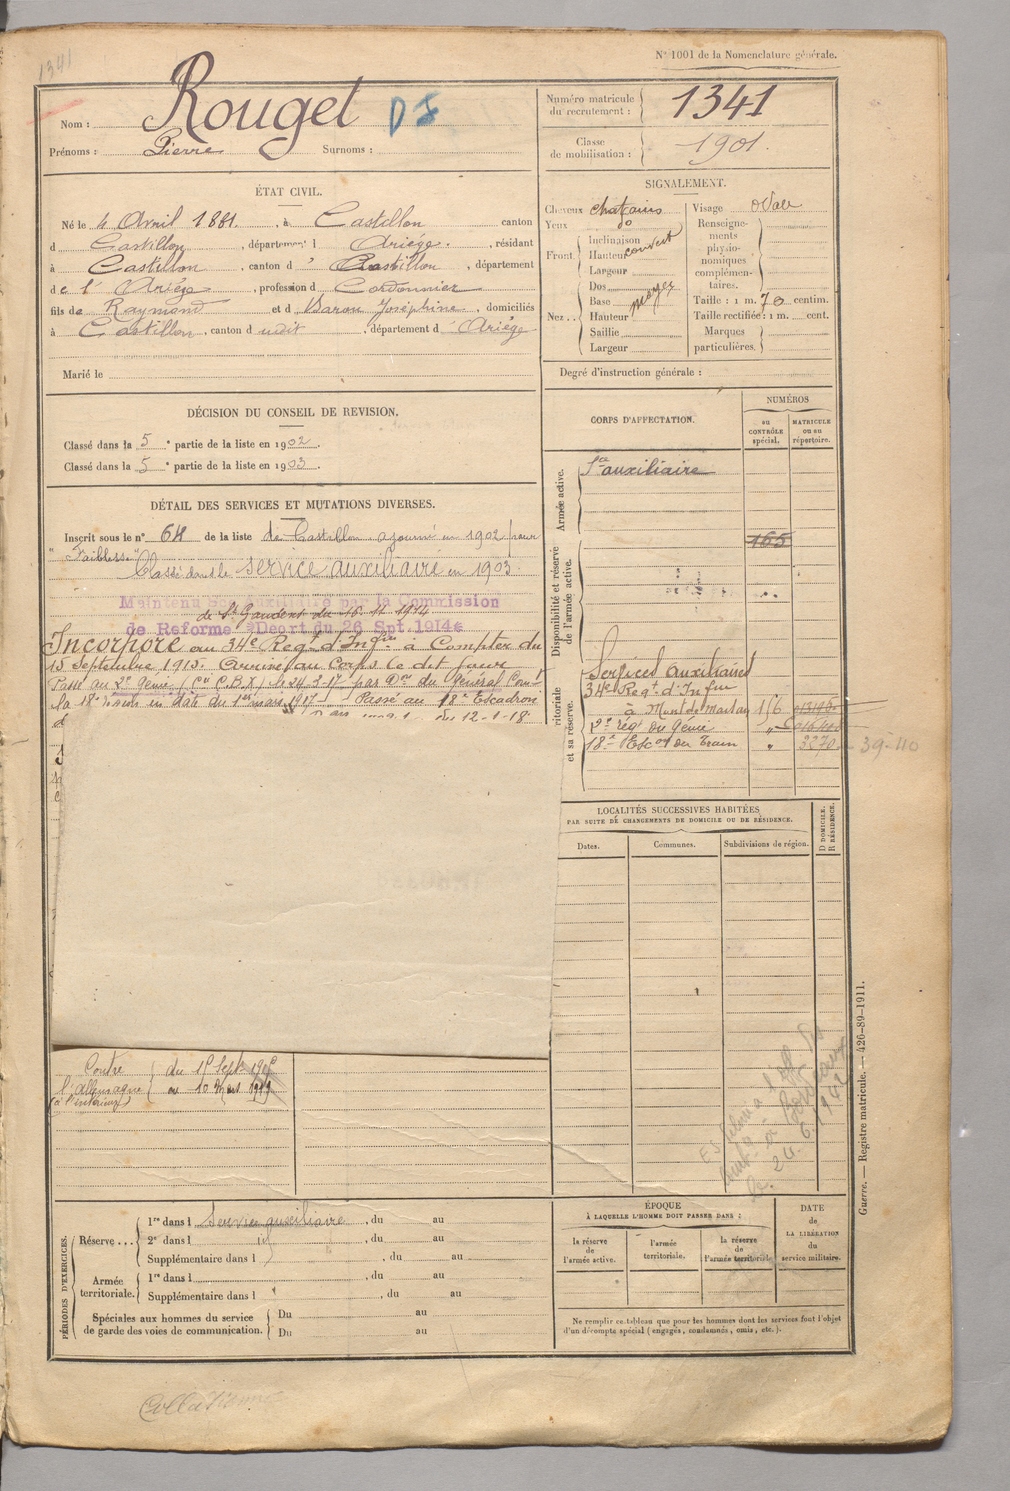 1341
N° 1001 de la Nomenclature générale.
Nom : Rouget DF
Prénoms : Pierre Surnoms :
Numéro matricule du recrutement : 1341
Classe de mobilisation : 1901.
ÉTAT CIVIL.
Né le 4 Avril 1881. , à Castillon canton
d Castillon , département d Ariège. , résidant
à Castillon , canton d Castillon , département
de l' Ariége , profession d Cordonnier
fils de Raymond et d Baron Joséphine , domiciliés
à Castillon , canton dudit , département d' Ariège
Marié le
SIGNALEMENT.
Cheveux chatains
Yeux do
Front Inclinaison
Hauteur couvert
Largeur
Nez .. Dos
Base moyen
Hauteur
Saillie
Largeur
Visage ovale
Renseignements physionomiques complémentaires.
Taille : 1 m. 70 centim.
Taille rectifiée : 1 m. cent.
Marques particulières.
Degré d'instruction générale :
DÉCISION DU CONSEIL DE REVISION.
Classé dans la 5e partie de la liste en 1902.
Classé dans la 5e partie de la liste en 1903.
DÉTAIL DES SERVICES ET MUTATIONS DIVERSES.
Inscrit sous le n° 64 de la liste de Castillon ajourné en 1902 pour
"Faiblesse"
Classé dans le service auxiliaire en 1903
Maintenu Sce Auxiliaire par la Commission
de St Gaudens du 16. 11 1914
de Reforme Décrt du 26 Spt. 1914
Incorporé au 34e Regt d'Infie à Compter du
15 Septembre 1915. Arrivé au Corps le dit jour
Passé au 2e Génie (Cie C.B.X) le 24-3-17 par Don du Général Comt
la 18e Région en date du 1er mars 1917 Passé au 18e Escadron
du 12-1-18
CORPS D'AFFECTATION.
NUMÉROS
au CONTRÔLE spécial.
MATRICULE ou au répertoire.
Armée active.
Sce auxiliaire
Disponibilité et réserve de l'armée active.
165
territoriale et sa réserve.
Services auxiliaires
34e Regt d'Infie
à Mont de Marsan 156
2e rég du Génie
18e Escon du Train 3270 39-40
LOCALITÉS SUCCESSIVES HABITÉES
PAR SUITE DE CHANGEMENTS DE DOMICILE OU DE RÉSIDENCE.
Dates. Communes. Subdivisions de région.
D DOMICILE. R RÉSIDENCE.
Contre du 15 Sept 1915
l'Allemagne au 10 Mars 1919
(à l'intérieur)
24.6.1942
PÉRIODES D'EXERCICES.
Réserve ... 1re dans l Service auxiliaire , du au
2e dans l id , du au
Supplémentaire dans l , du au
Armée territoriale. 1re dans l , du au
Supplémentaire dans l , du au
Spéciales aux hommes du service de garde des voies de communication. Du au
Du au
ÉPOQUE
À LAQUELLE L'HOMME DOIT PASSER DANS :
la réserve de l'armée active.
l'armée territoriale.
la réserve de l'armée territoriale
DATE de LA LIBÉRATION du service militaire.
Ne remplir ce tableau que pour les hommes dont les services font l'objet
d'un décompte spécial (engagés, condamnés, omis, etc.).
Guerre. — Registre matricule. — 426-89-1911.
Collationné